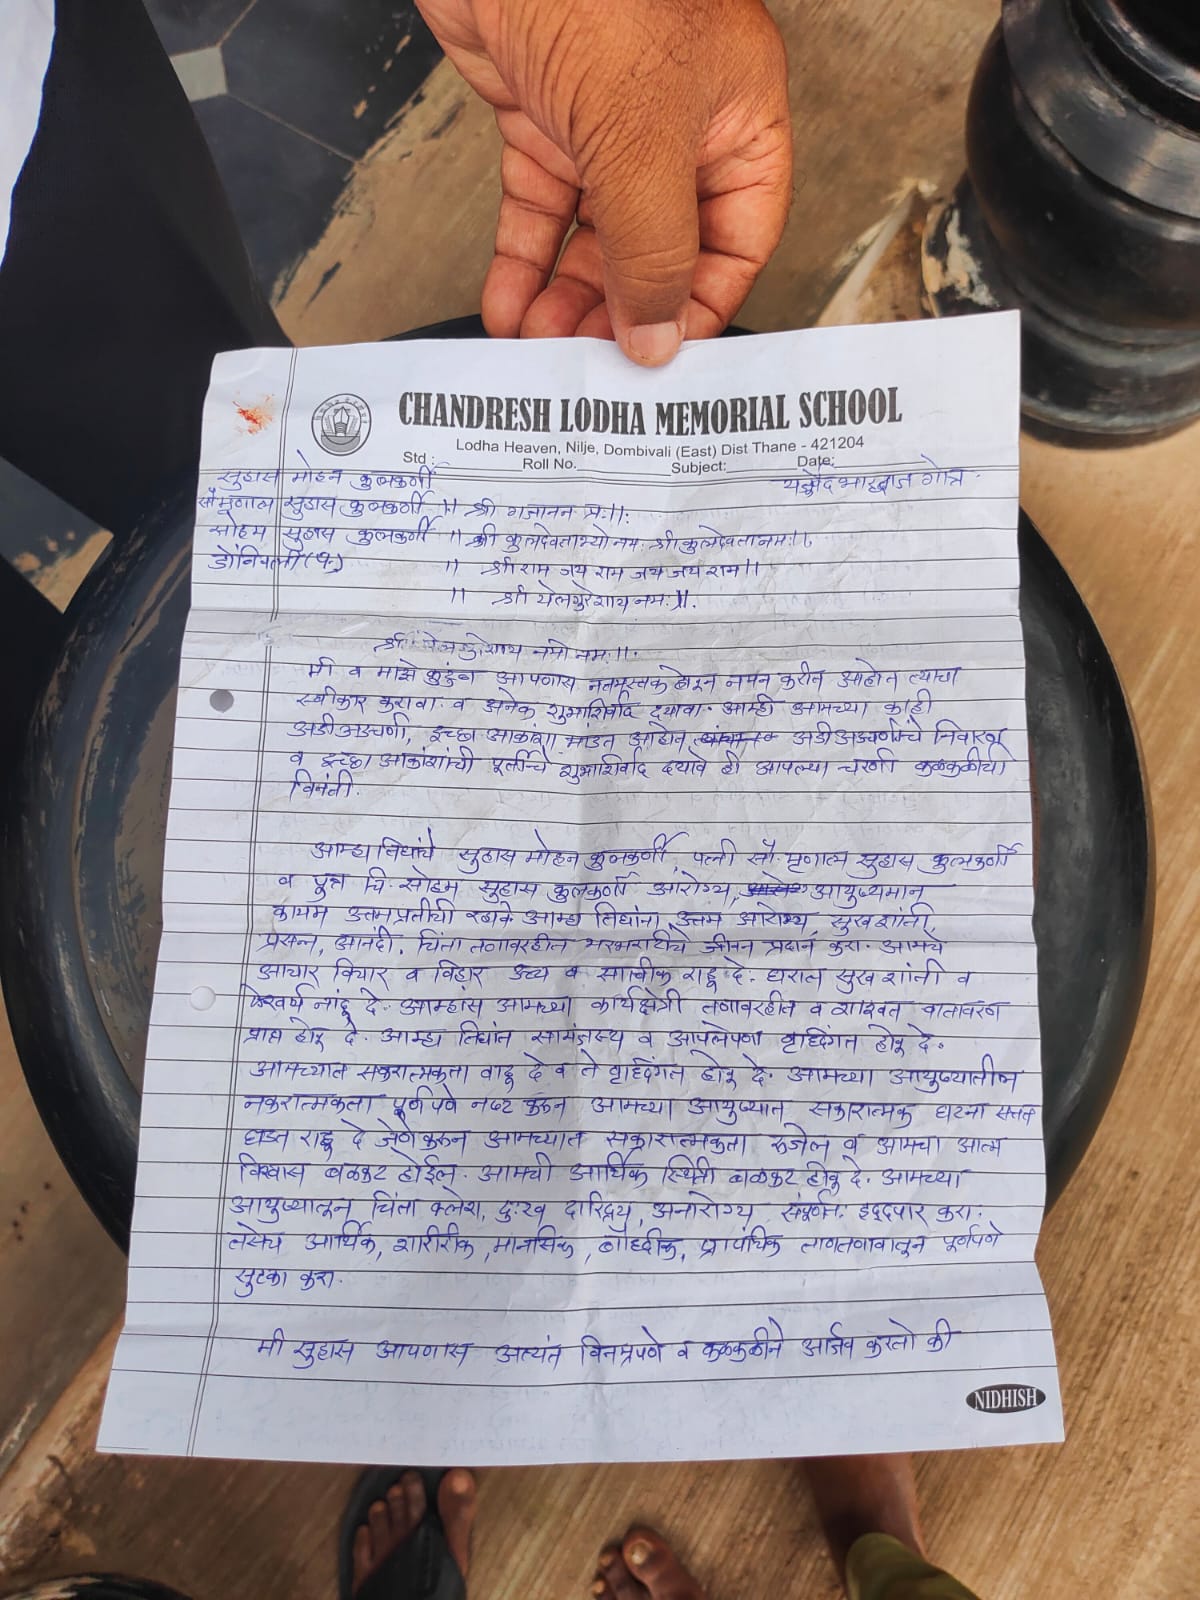 CHANDRESH LODHA MEMORIAL SCHOOL
Lodha Heaven, Nilje, Dombivali (East) Dist Thane - 421204
Std : Roll No. Subject: Date:
सुहास मोहन कुलकर्णी गोत्र
सौ मृणाल सुहास कुलकर्णी ॥ श्री गजानन प्र.॥:
सोहम सुहास कुलकर्णी ॥ श्री कुलदेवताभ्यो नमः श्री कुलदेवता नमः॥.
डोंबिवली (पू) ॥ श्रीराम जय राम जय जय राम॥
॥ श्री येलगुरेशाय नमः॥.
श्री नमो नमः॥.
मी व माझे कुटुंब आपणास नतमस्तक होऊन नमन करीत आहोत त्याचा
स्वीकार करावा. व अनेक शुभाशिर्वाद दयावा. आम्ही आमच्या काही
अडीअडचणी, इच्छा आकांशा मांडत आहोत, अडीअडचणींचे निवारण
व इच्छा आकांशांची पूर्तीचे शुभाशिर्वाद दयावे ही आपल्या चरणी कळकळीची
विनंती.
आम्हा तिघांचे सुहास मोहन कुलकर्णी, पत्नी सौ. मृणाल सुहास कुलकर्णी
व पुत्र चि. सोहम सुहास कुलकर्णी आरोग्य, आयुष्यमान
कायम उत्तम प्रतीची आम्हा तिघांना उत्तम आरोग्य, सुख शांती,
प्रसन्न, आनंदी, चिंता तणावरहीत भरभराटीचे जीवन प्रदान करा. आमचे
आचार विचार व विहार उच्च व सात्वीक राहू दे. घरात सुख शांती व
ऐश्वर्य नांदू दे. आम्हांस आमच्या कार्यक्षेत्री तणावरहीत व शाश्वत वातावरण
प्राप्त होऊ दे. आम्हा तिघांत सामंजस्य व आपलेपणा वृध्दिंगत होऊ दे.
आमच्यात सकारात्मकता वाढू दे व ते वृध्दिंगत होऊ दे. आमच्या आयुष्यातील
नकारात्मकता पूर्णपणे नष्ट करून आमच्या आयुष्यात सकारात्मक घटना सतत
घडत राहू दे जेणेकरून आमच्यात सकारात्मकता रुजेल व आमचा आत्म
विश्वास बळकट होईल. आमची आर्थिक स्थिती बळकट होऊ दे. आमच्या
आयुष्यातून चिंता क्लेश, दुःख दारिद्र्य, अनारोग्य संपूर्णतः हद्दपार करा.
तसेच आर्थिक, शारीरीक, मानसिक, बौध्दीक, प्रापंचिक ताणतणावातून पूर्णपणे
सुटका करा.
मी सुहास आपणास अत्यंत विनम्रपणे व कळकळीने आर्जव करतो की
NIDHISH